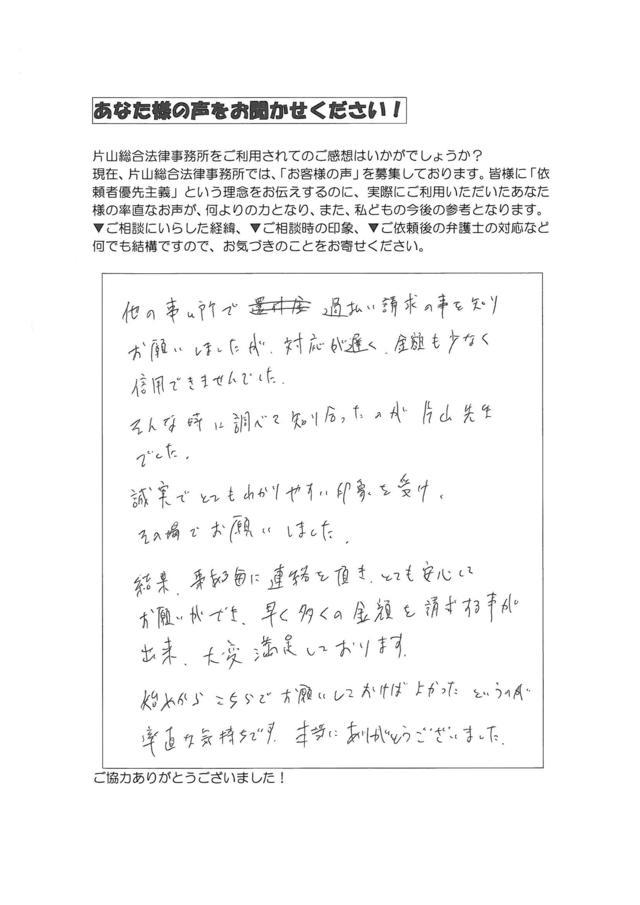 あなた様の声をお聞かせください！
片山総合法律事務所をご利用されてのご感想はいかがでしょうか？
現在、片山総合法律事務所では、「お客様の声」を募集しております。皆様に「依
頼者優先主義」という理念をお伝えするのに、実際にご利用いただいたあなた
様の率直なお声が、何よりの力となり、また、私どもの今後の参考となります。
▼ご相談にいらした経緯、▼ご相談時の印象、▼ご依頼後の弁護士の対応など
何でも結構ですので、お気づきのことをお寄せください。
他の事ム所で 過払い請求の事を知り
お願いしましたが、対応が遅く、金額も少なく
信用できませんでした。
そんな時に調べて知り合ったのが片山先生
でした。
誠実でとてもわかりやすい印象を受け、
その場でお願いしました。
結果、 毎に連絡を頂き、とても安心して
お願いができ、早く多くの金額を請求する事が
出来、大変満足しております。
始めからこちらでお願いしておけばよかったというのが
率直な気持ちです。本当にありがとうございました。
ご協力ありがとうございました！